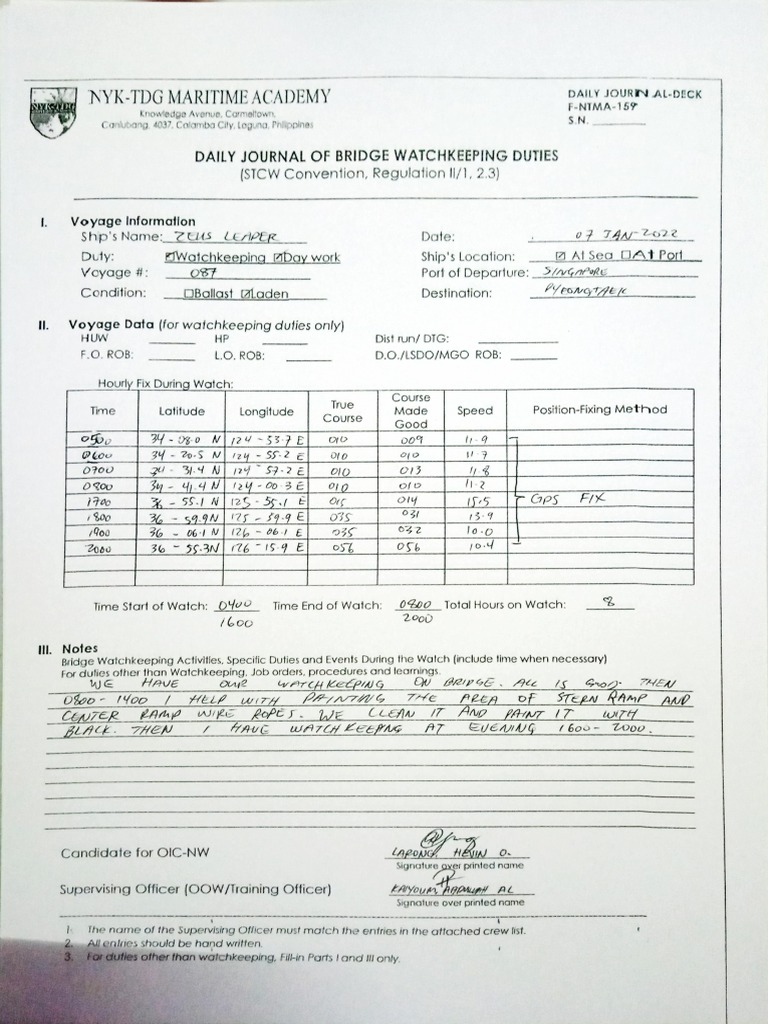 NYK-TDG MARITIME ACADEMY
Knowledge Avenue, Carmeltown,
Canlubang, 4037, Calamba City, Laguna, Philippines
DAILY JOURNAL-DECK
F-NTMA-159
S.N.
DAILY JOURNAL OF BRIDGE WATCHKEEPING DUTIES
(STCW Convention, Regulation II/1, 2.3)
I. Voyage Information
Ship's Name: ZEUS LEAPER Date: 07 JAN 2022
Duty: ☑Watchkeeping ☑Day work Ship's Location: ☑ At Sea ☐At Port
Voyage #: 087 Port of Departure: SINGAPORE
Condition: ☐Ballast ☑Laden Destination: PYEONGTAEK
II. Voyage Data (for watchkeeping duties only)
HUW HP Dist run/ DTG:
F.O. ROB: L.O. ROB: D.O./LSDO/MGO ROB:
Hourly Fix During Watch:
Time Latitude Longitude True Course Course Made Good Speed Position-Fixing Method
0500 34-08.0 N 124-53.7 E 010 009 11.9
0600 34-20.5 N 124-55.2 E 010 010 11.7
0700 34-31.4 N 124-57.2 E 010 013 11.8
0800 34-41.4 N 124-00.3 E 010 010 11.2
1700 36-55.1 N 125-55.1 E 015 014 15.5 GPS FIX
1800 36-59.9N 125-59.9 E 035 031 13.9
1900 36-06.1 N 126-06.1 E 035 032 10.0
2000 36-55.3N 126-15.9 E 056 056 10.4
Time Start of Watch: 0400 Time End of Watch: 0800 Total Hours on Watch: 8
1600 2000
III. Notes
Bridge Watchkeeping Activities, Specific Duties and Events During the Watch (include time when necessary)
For duties other than Watchkeeping, Job orders, procedures and learnings.
WE HAVE OUR WATCHKEEPING ON BRIDGE. ALL IS GOOD. THEN
0800-1400 I HELP WITH PAINTING THE AREA OF STERN RAMP AND
CENTER RAMP WIRE ROPES. WE CLEAN IT AND PAINT IT WITH
BLACK. THEN I HAVE WATCHKEEPING AT EVENING 1600-2000.
Candidate for OIC-NW HEVIN O.
Signature over printed name
Supervising Officer (OOW/Training Officer) AL
Signature over printed name
1. The name of the Supervising Officer must match the entries in the attached crew list.
2. All entries should be hand written.
3. For duties other than watchkeeping, Fill-in Parts I and III only.